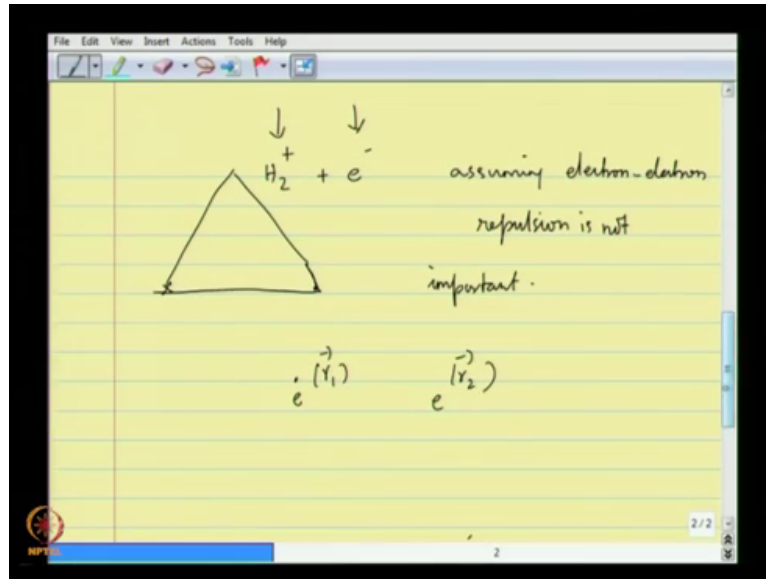 File Edit View Insert Actions Tools Help
↓ ↓
H₂⁺ + e⁻ assuming electron-electron
repulsion is not
important.
e (r⃗₁) e (r⃗₂)
2/2
NPTEL
2